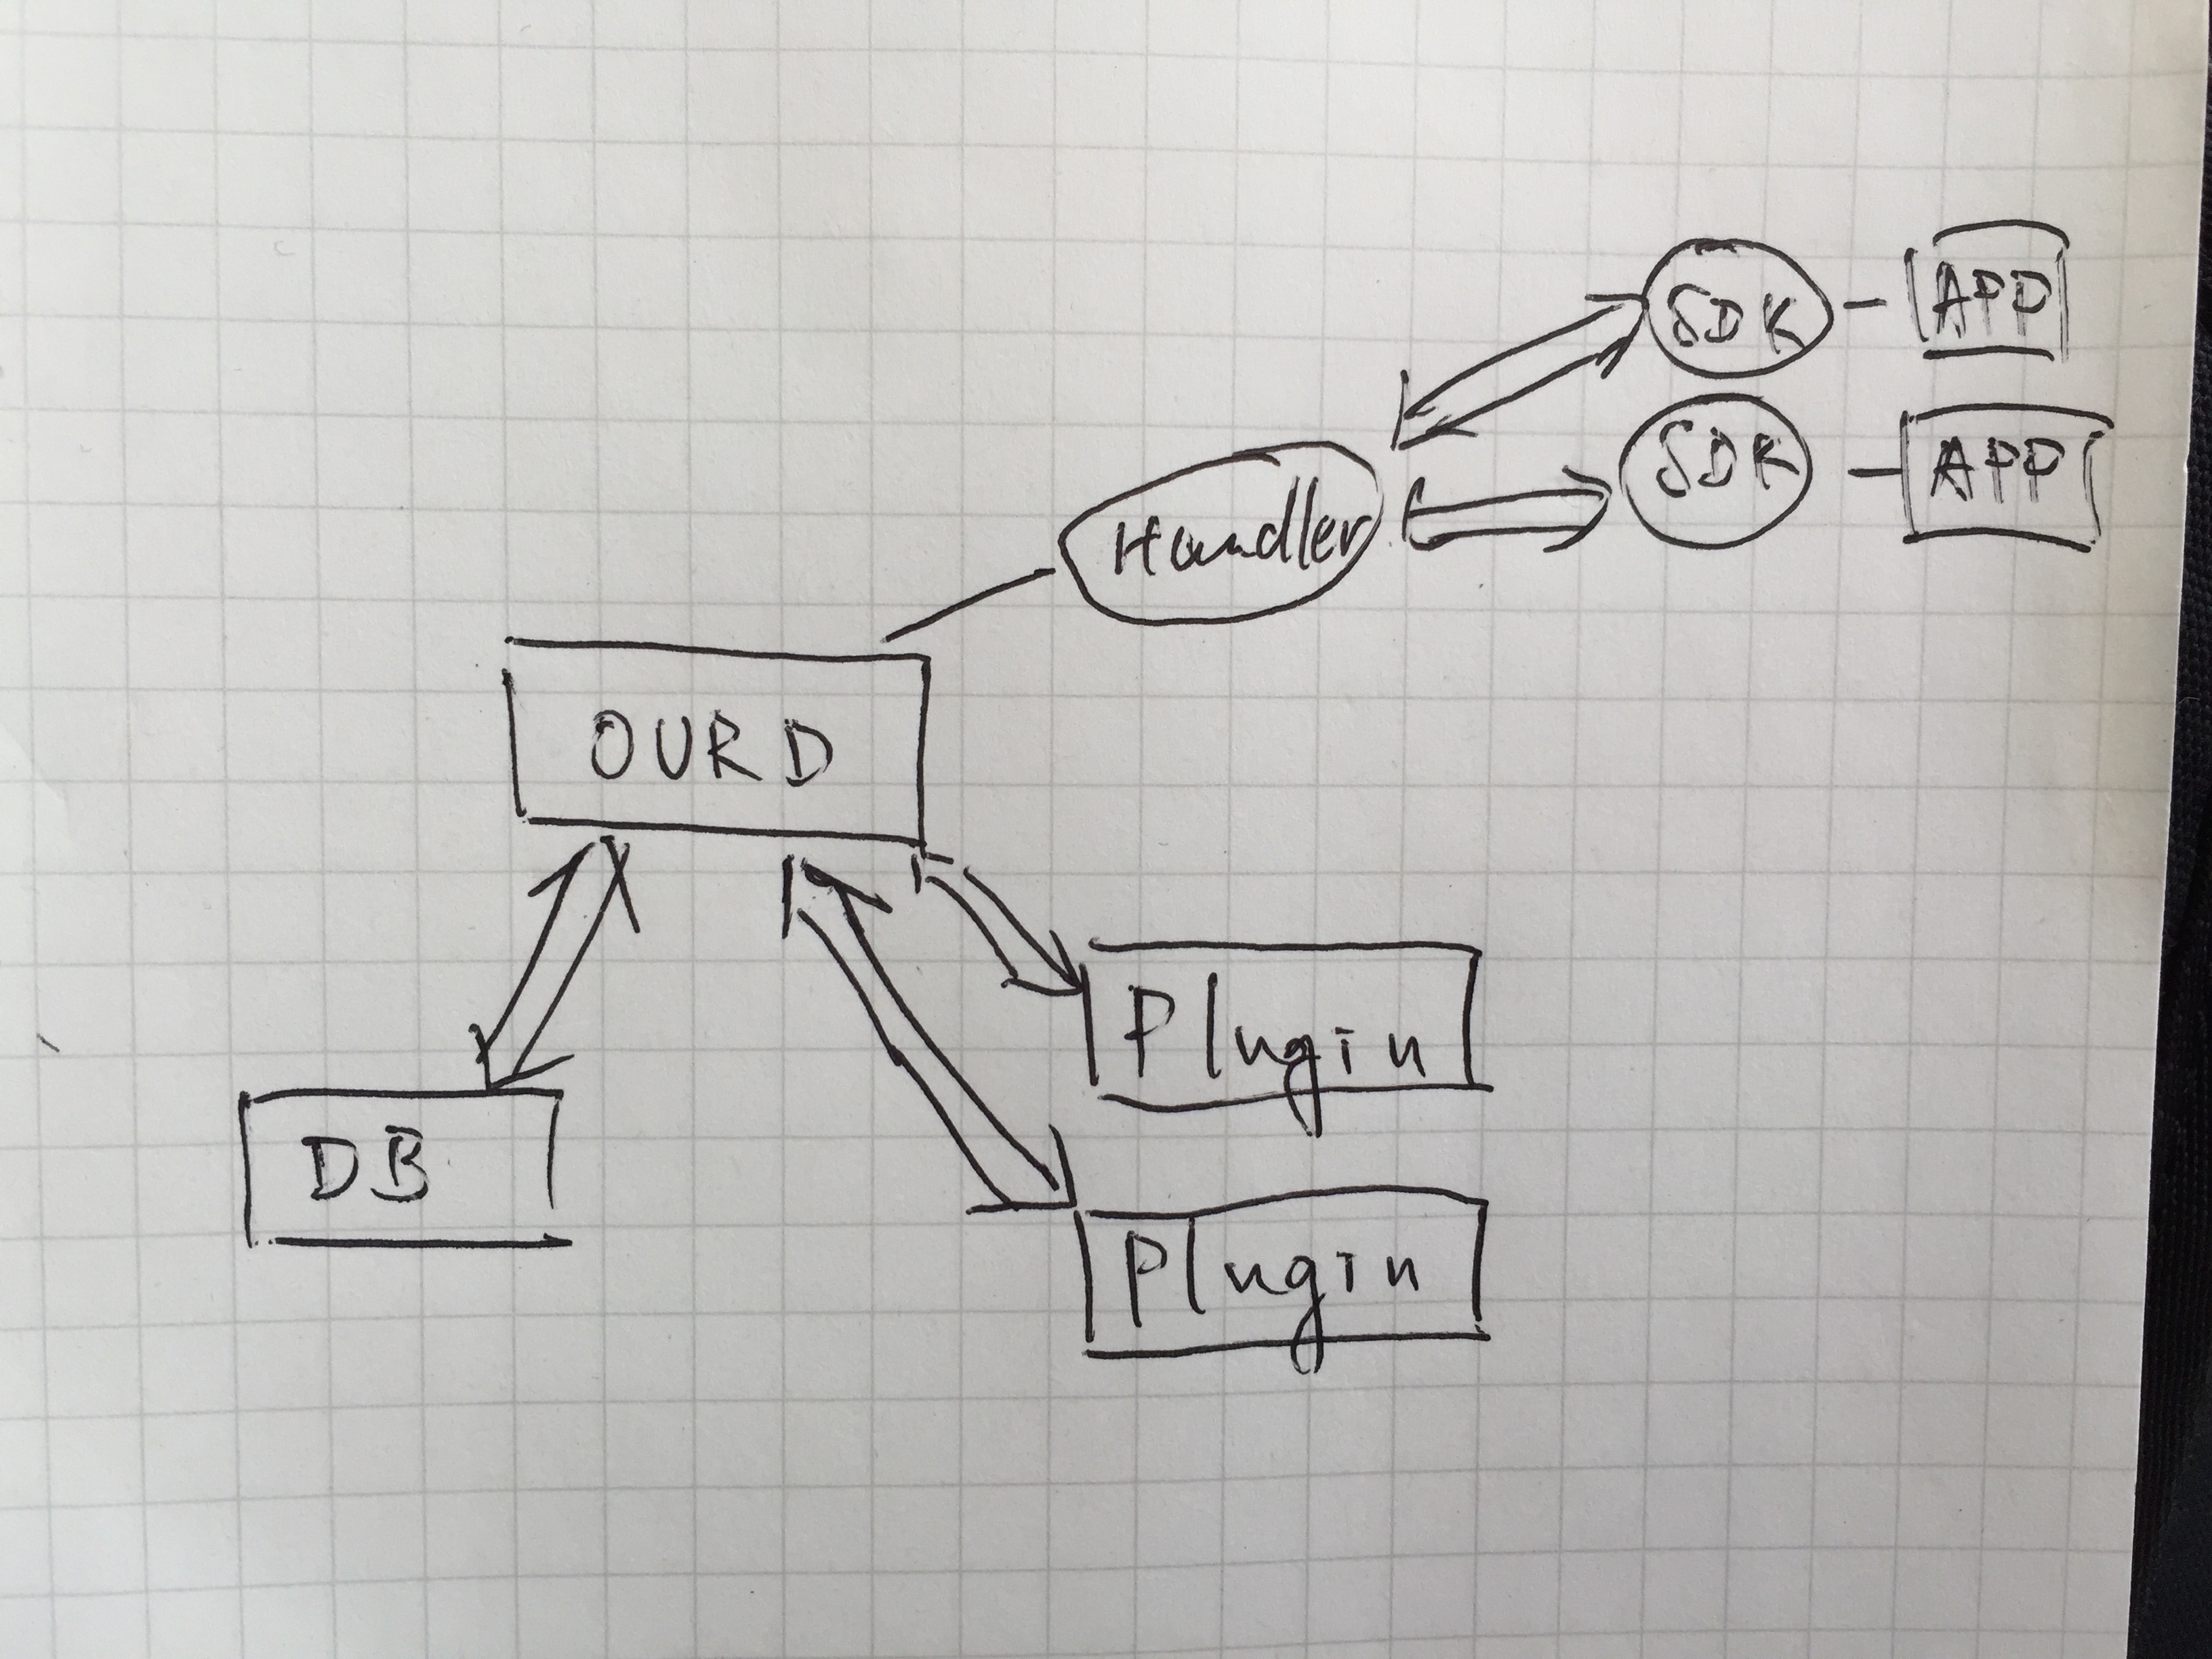 SDK
APP
SDK
APP
Handler
OURD
Plugin
DB
Plugin